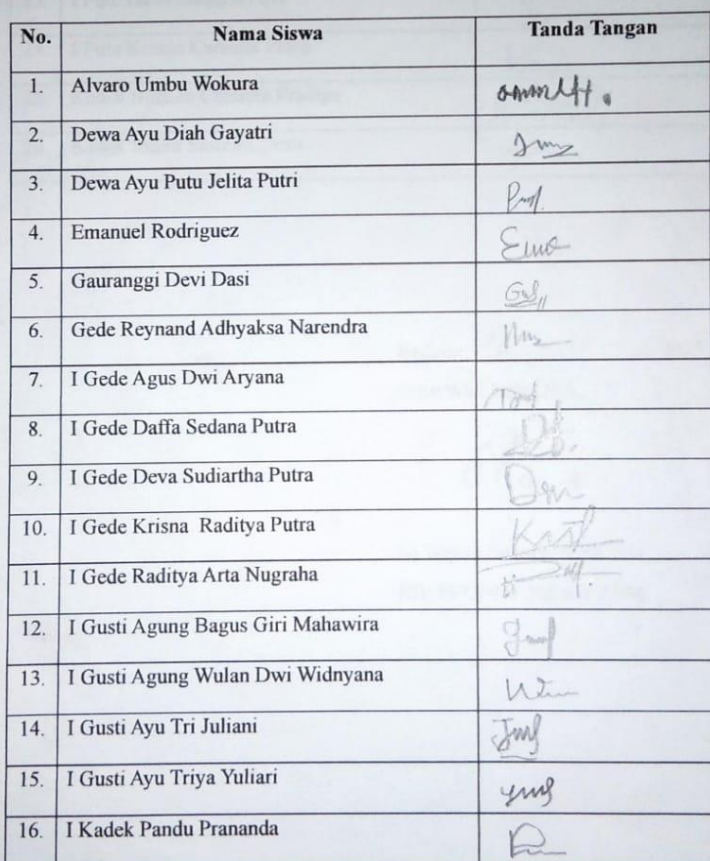 No. Nama Siswa Tanda Tangan
1. Alvaro Umbu Wokura
2. Dewa Ayu Diah Gayatri
3. Dewa Ayu Putu Jelita Putri
4. Emanuel Rodriguez
5. Gauranggi Devi Dasi
6. Gede Reynand Adhyaksa Narendra
7. I Gede Agus Dwi Aryana
8. I Gede Daffa Sedana Putra
9. I Gede Deva Sudiartha Putra
10. I Gede Krisna Raditya Putra
11. I Gede Raditya Arta Nugraha
12. I Gusti Agung Bagus Giri Mahawira
13. I Gusti Agung Wulan Dwi Widnyana
14. I Gusti Ayu Tri Juliani
15. I Gusti Ayu Triya Yuliari
16. I Kadek Pandu Prananda